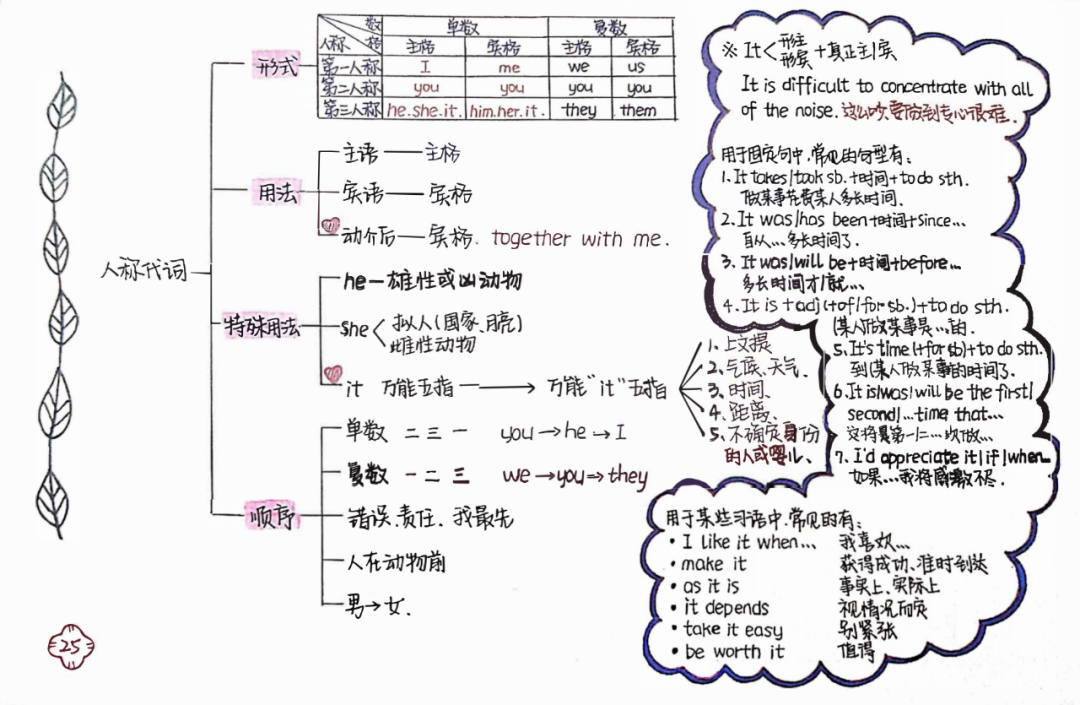 人称代词
形式
数 单数 复数
人称 格 主格 宾格 主格 宾格
第一人称 I me we us
第二人称 you you you you
第三人称 he.she.it. him.her.it. they them
用法
主语——主格
宾语——宾格
动介后——宾格. together with me.
特殊用法
he—雄性或凶动物
she 拟人(国家.月亮)
雌性动物
it 万能五指 → 万能"it"五指
1. 上文提
2. 气候、天气.
3. 时间、
4. 距离、
5. 不确定身份
的人或婴儿、
顺序
单数 二三一 you→he→I
复数 一二三 we→you→they
错误.责任.我最先
人在动物前
男→女.
※ It 形主
形宾 +真正主|宾
It is difficult to concentrate with all
of the noise. 这么吵.要做到专心很难.
用于固定句中.常见的句型有:
1. It takes|took sb.+时间+to do sth.
做某事花费某人多长时间.
2. It was|has been+时间+since...
自从...多长时间了.
3. It was|will be+时间+before...
多长时间才|就...
4. It is +adj(+of|for sb.)+to do sth.
(某人)做某事是...的.
5. It's time(+for sb)+to do sth.
到(某人)做某事的时间了.
6. It is|was|will be the first|
second|...time that...
这将是第一|二...次做...
7. I'd appreciate it|if|when...
如果...我将感激不尽.
用于某些习语中.常见的有:
• I like it when... 我喜欢...
• make it 获得成功、准时到达
• as it is 事实上、实际上
• it depends 视情况而定
• take it easy 别紧张
• be worth it 值得
25